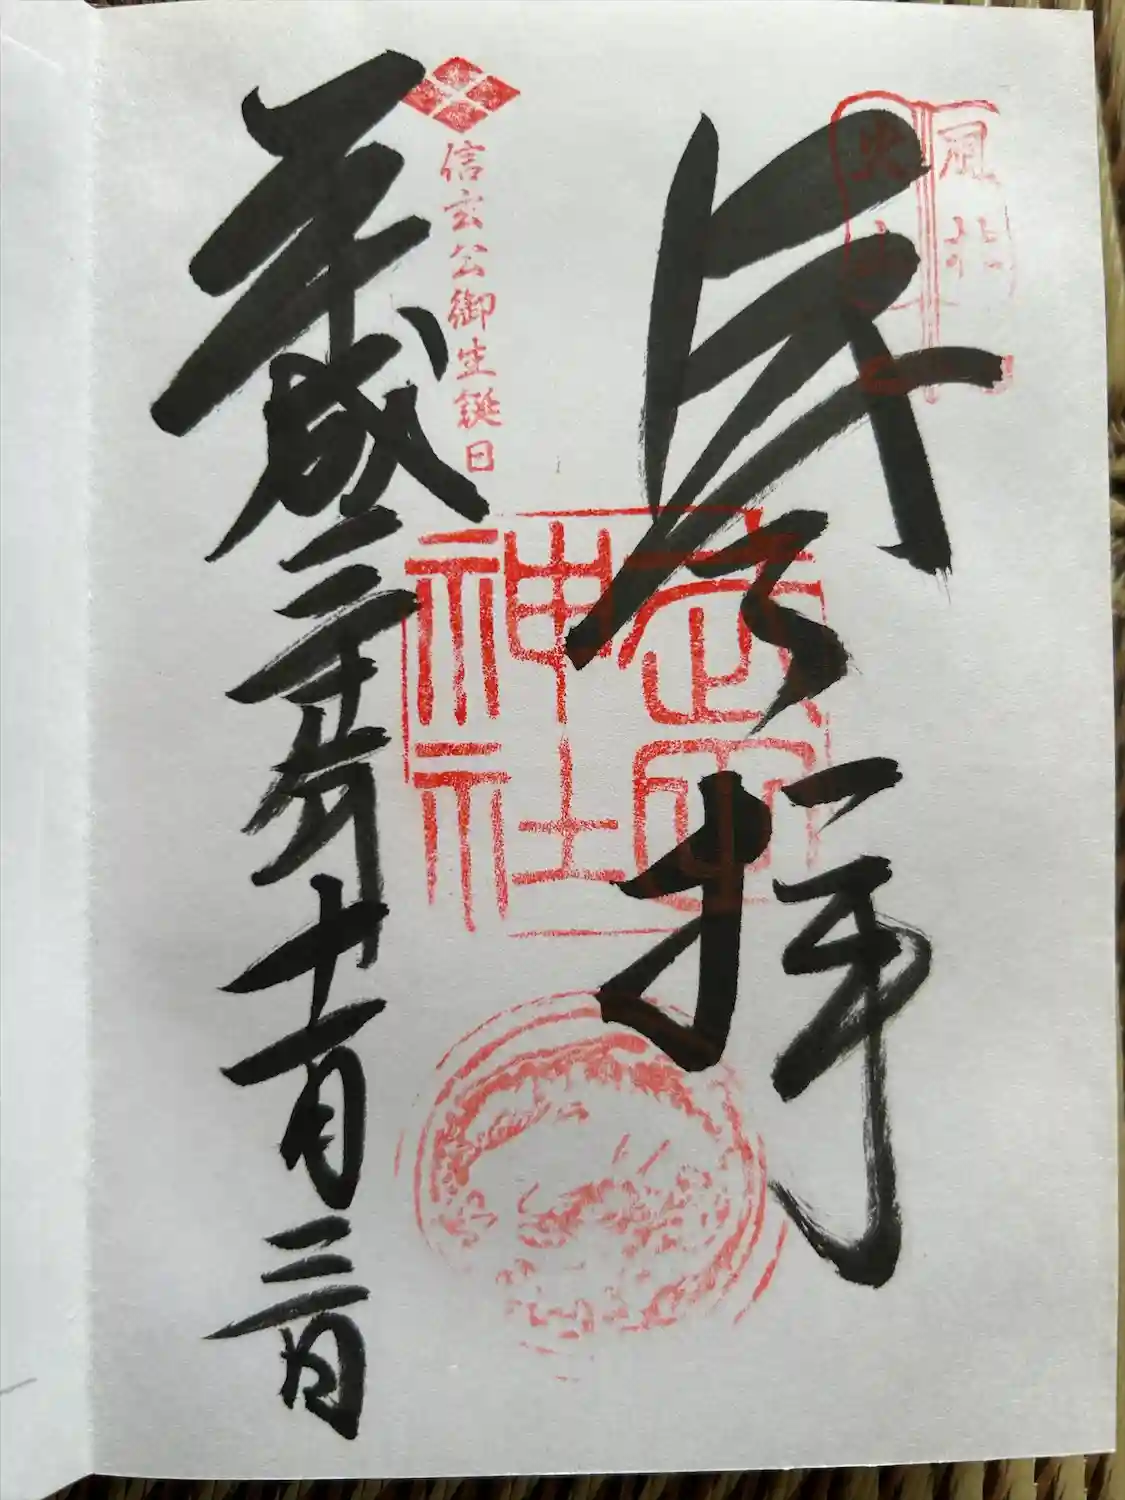 風林
火山
拝
武田
神社
信玄公御生誕日
平成二十年十一月三日